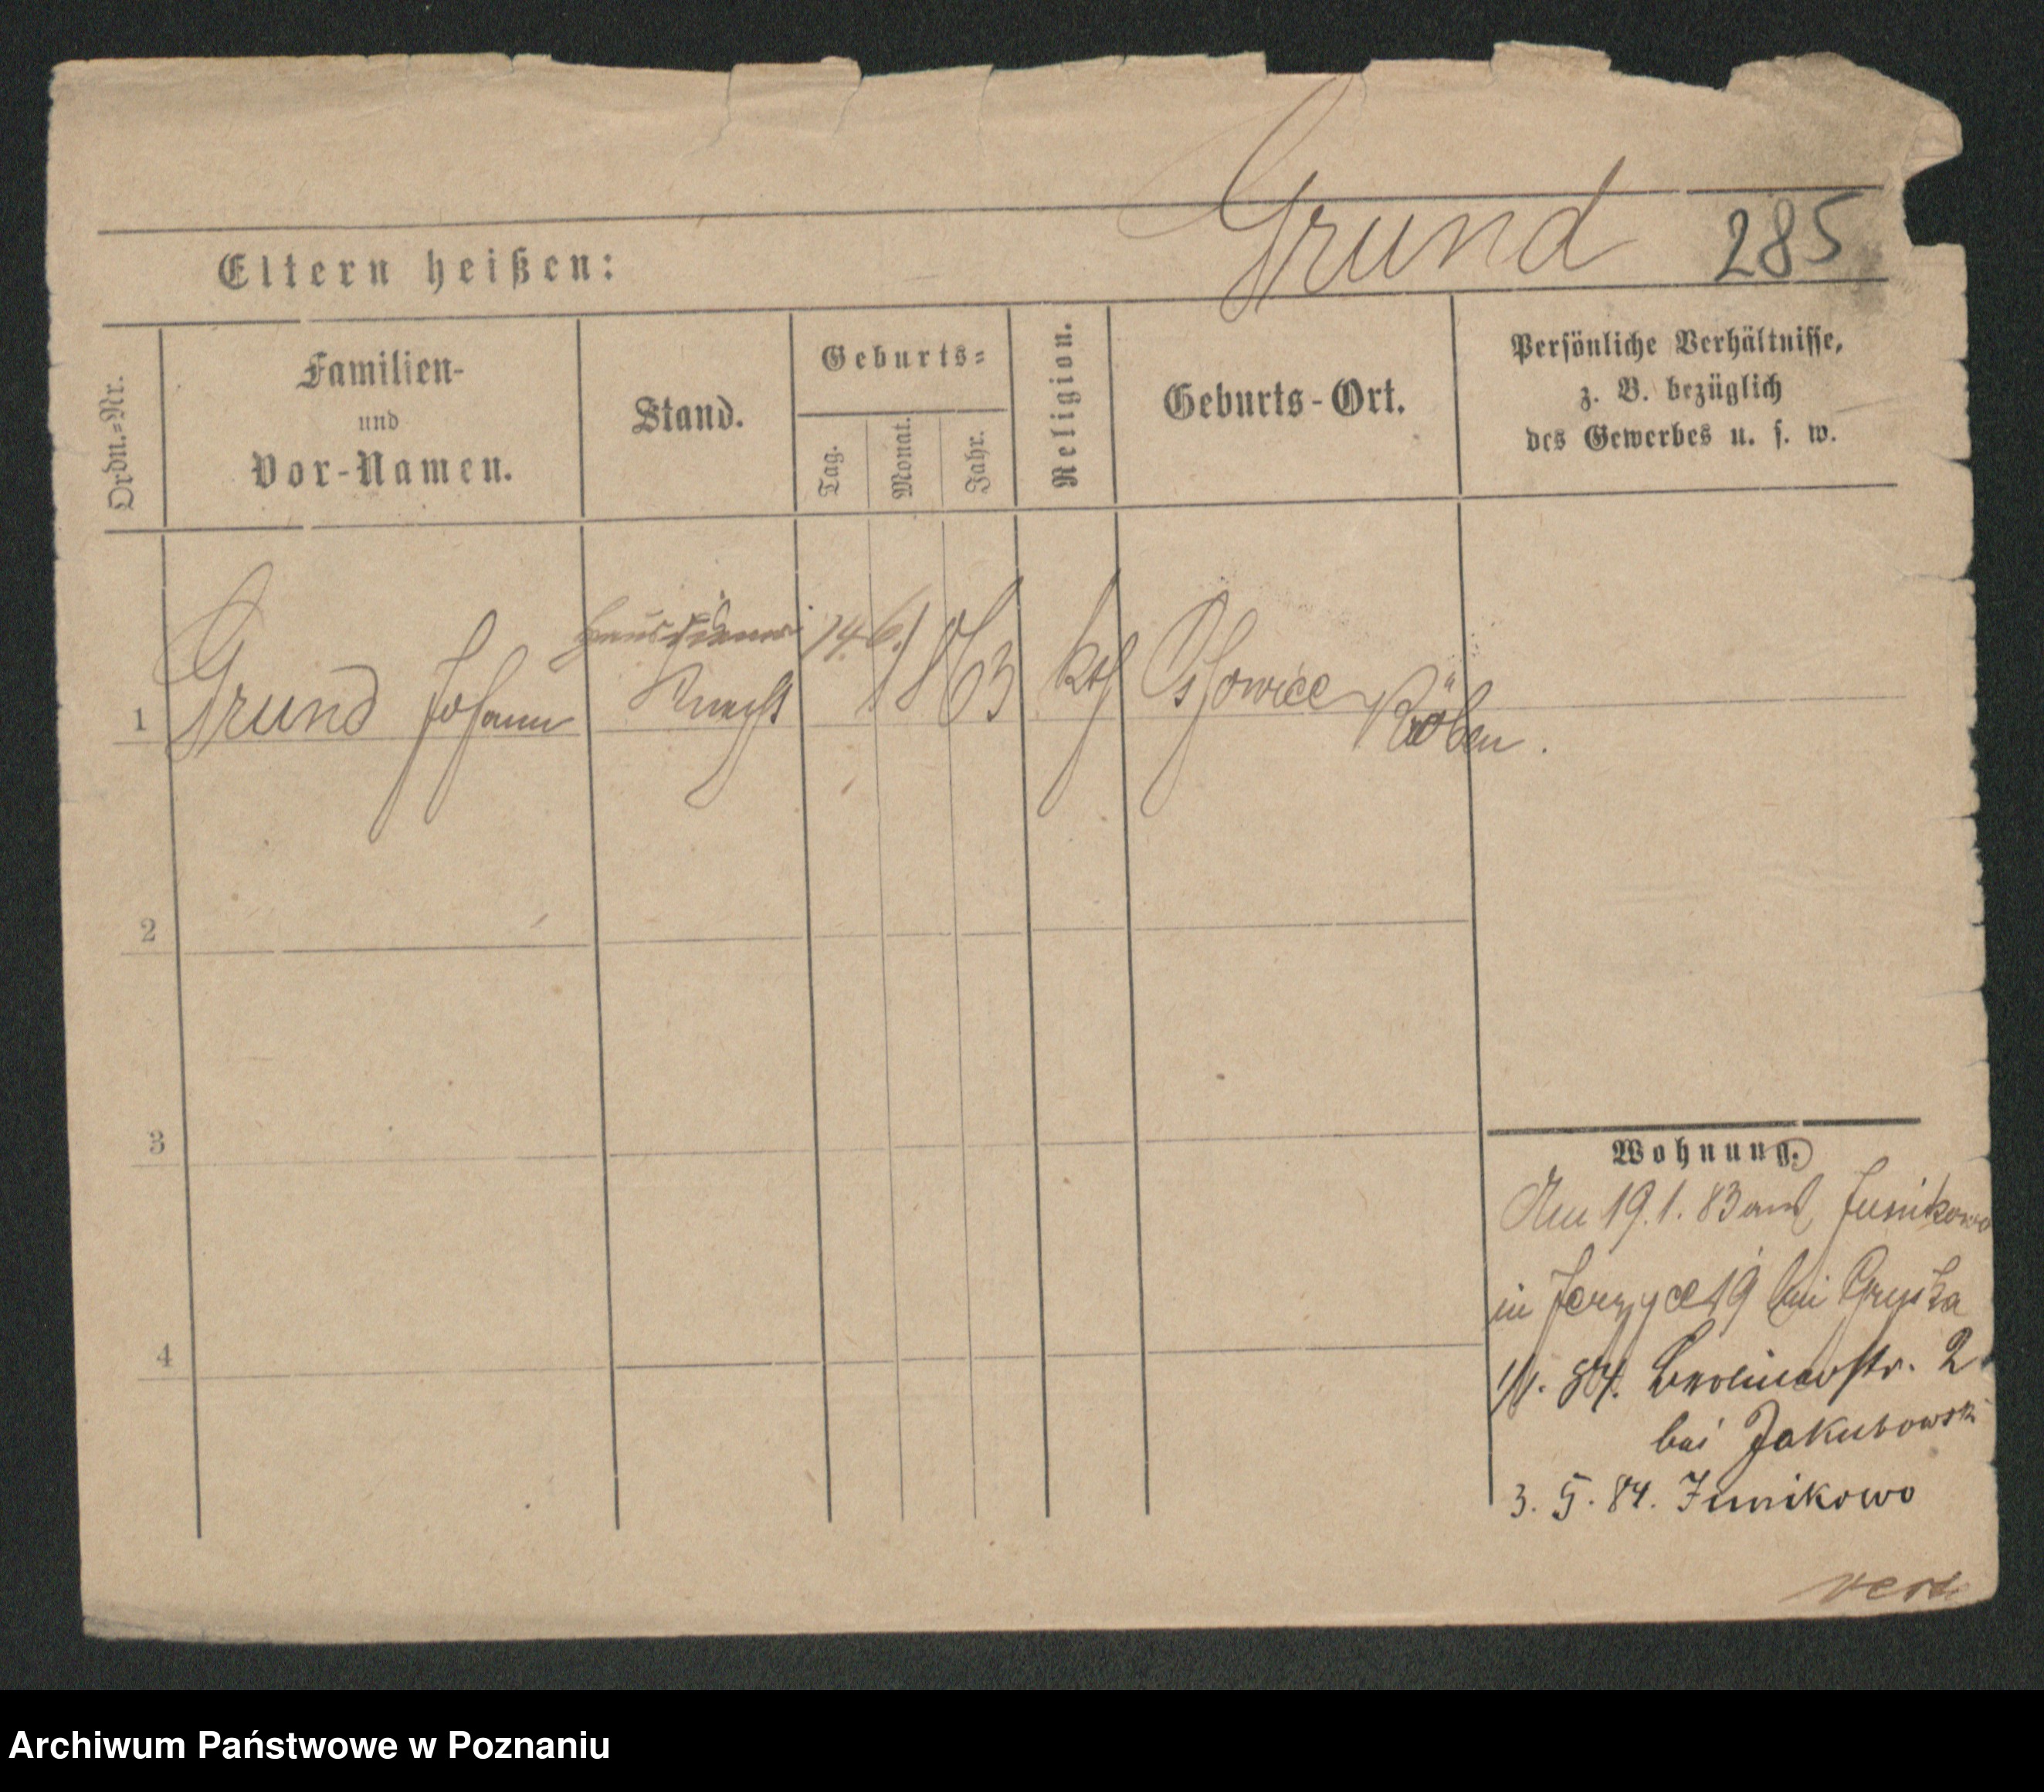 Grund 285
Eltern heißen:
Ordn.=Nr.
Familien-
und
Vor-Namen.
Stand.
Geburts=
Tag.
Monat.
Jahr.
Religion.
Geburts-Ort.
Persönliche Verhältnisse,
z. B. bezüglich
des Gewerbes u. s. w.
Hausdiener
1 Grund Johann Knecht 14. 6. 1863 kth Kröben.
2
3
4
Wohnung.
Am 19.1.83 aus Junikowo
in Jerzyce 19 bei
1/1. 84. Berlinerstr. 2
bei Jakubowski
3. 5. 84. Junikowo
Archiwum Państwowe w Poznaniu